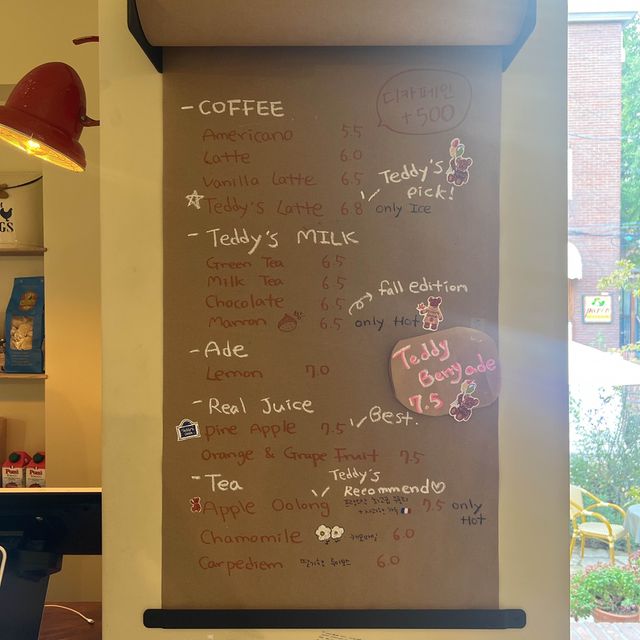 디카페인
+500
- COFFEE
Americano 5.5
Latte 6.0
Vanilla Latte 6.5
Teddy's pick!
Teddy's Latte 6.8 only Ice
- Teddy's MILK
Green Tea 6.5
Milk Tea 6.5
Chocolate 6.5
fall edition
Marron 6.5 only Hot
- Ade
Lemon 7.0
Teddy
Berry ade
7.5
- Real Juice
Best.
pine Apple 7.5
Orange & Grape Fruit 7.5
- Tea
Teddy's
Recommend♡
Apple Oolong 7.5 only Hot
Chamomile 6.0
Carpediem 6.0